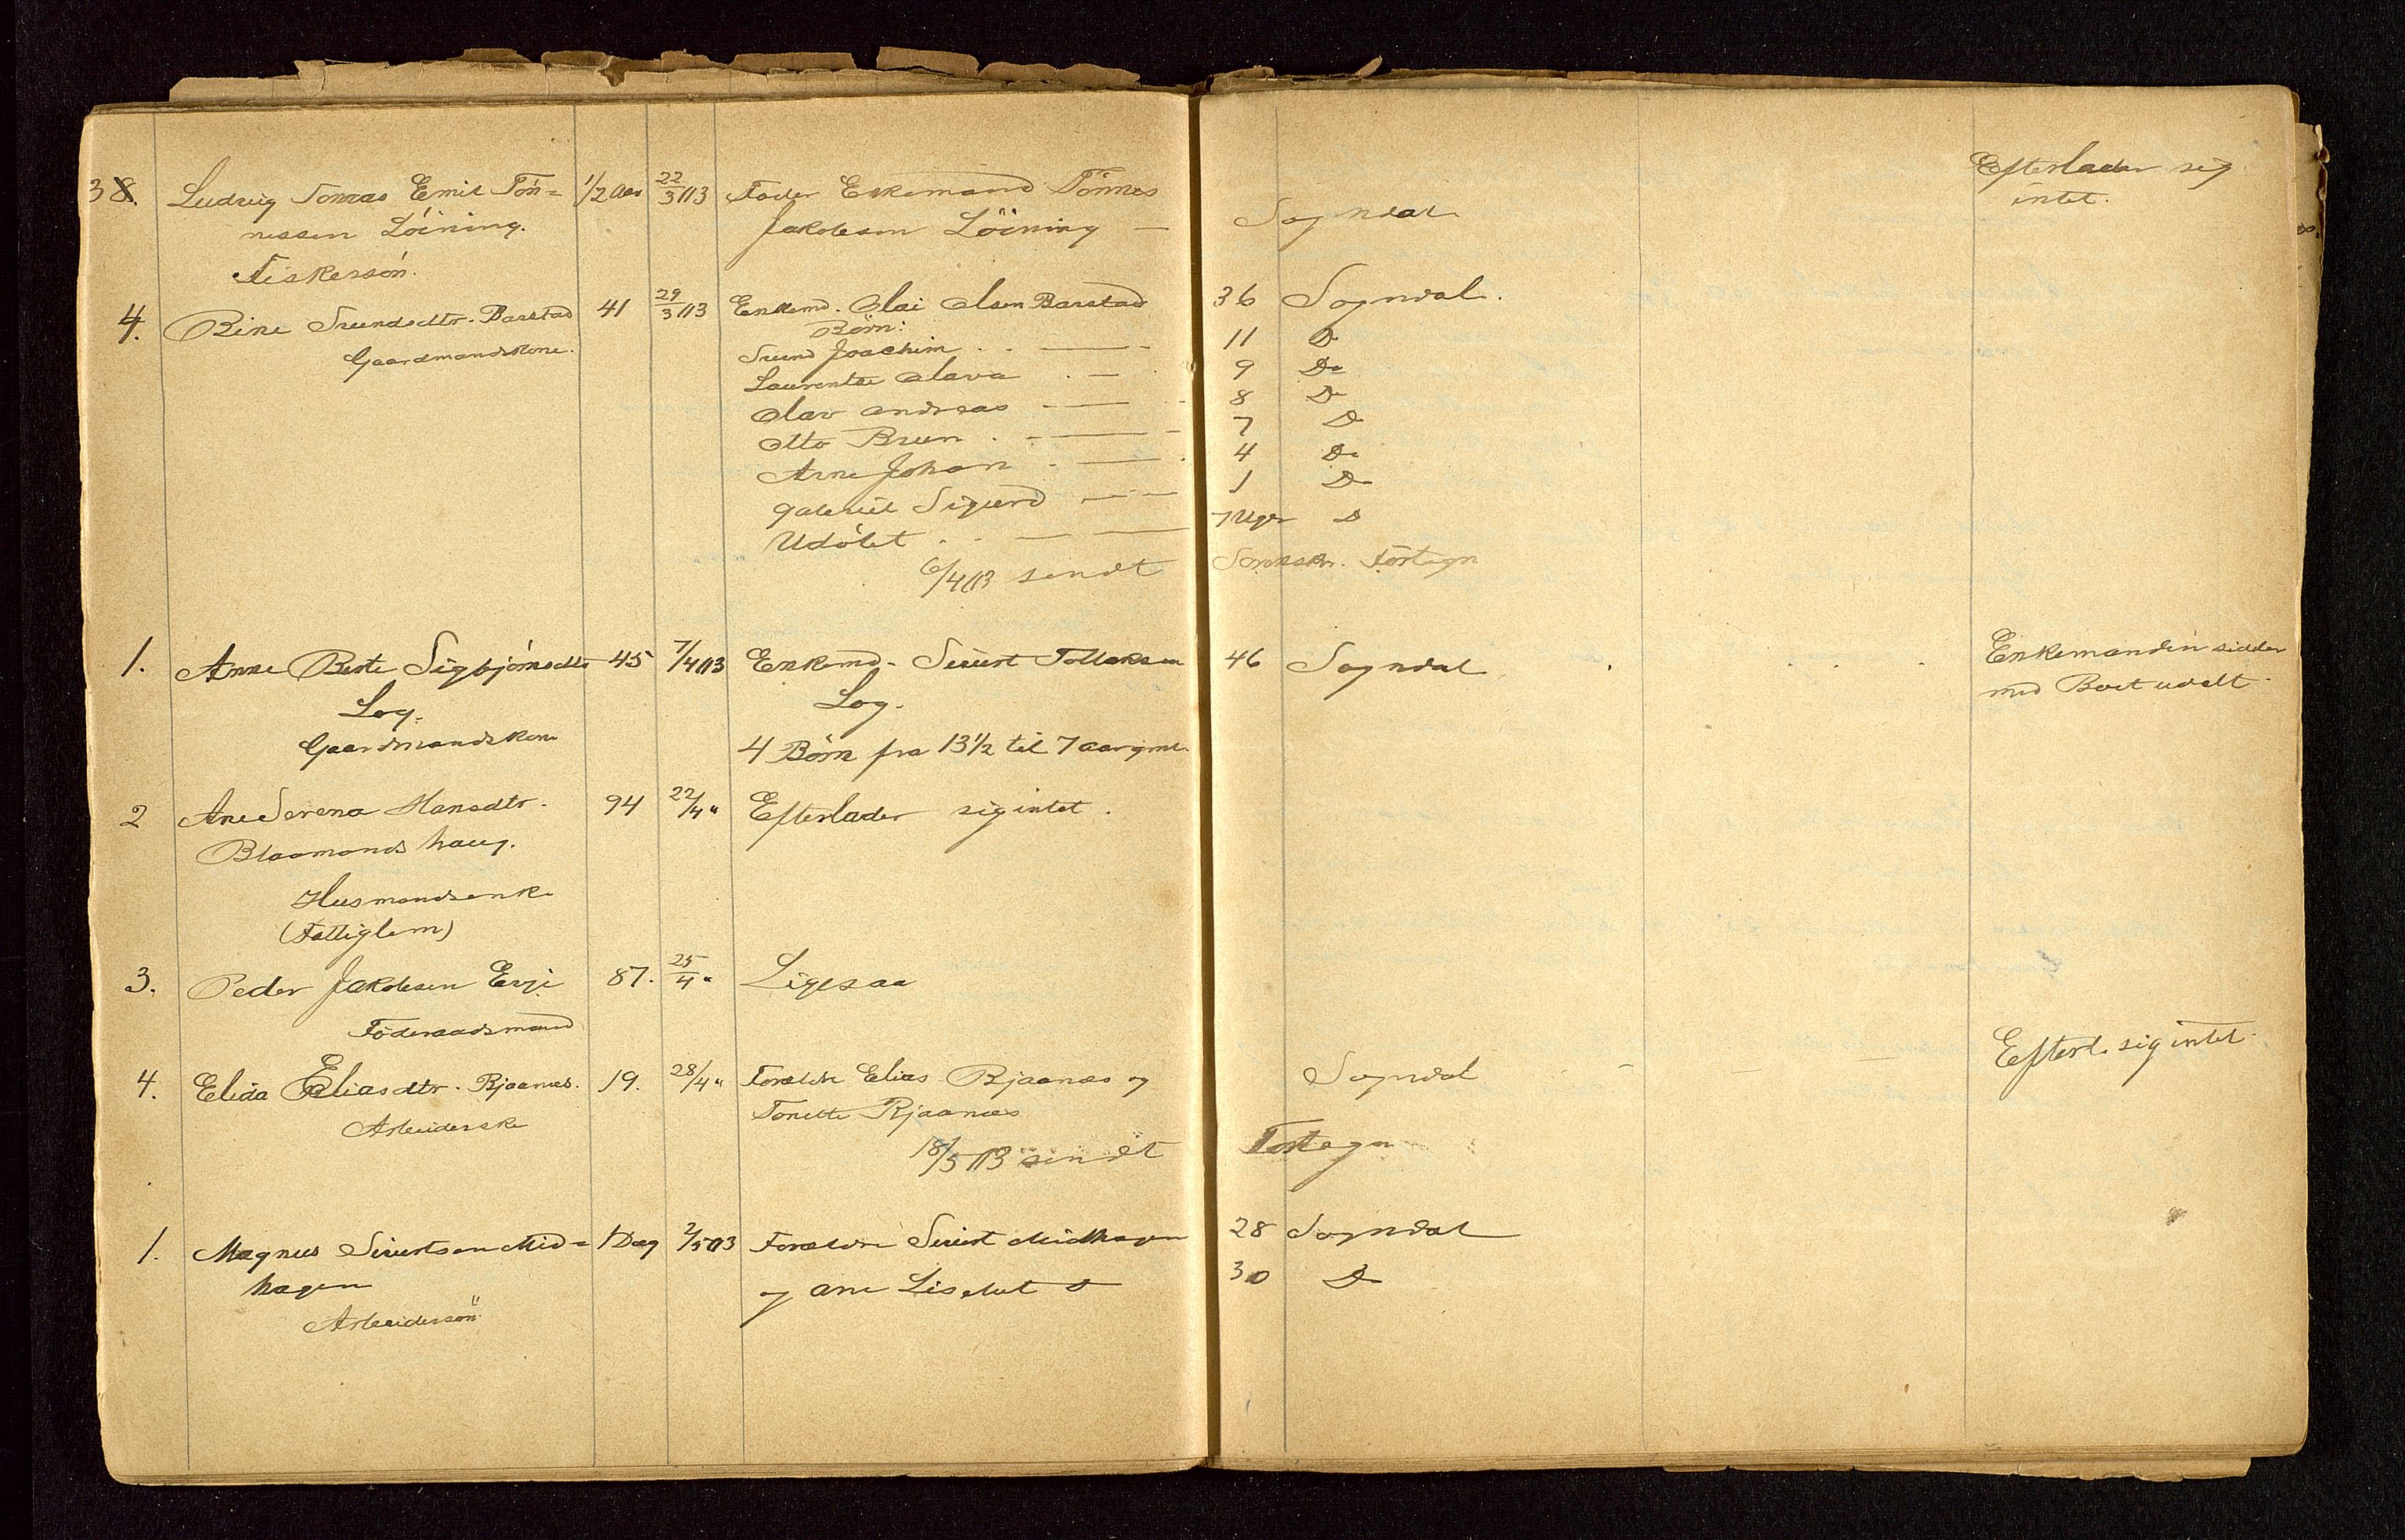 3. Ludvig Tomas Emil Tön= 1/2 Aar 22/3 03 Fader Enkemand Tönnes
nessen Löining. Jakobsen Löining — Sogndal Efterlader sig
intet.
Fiskersön.
4. Bine Svendsdtr. Barstad 41 29/3 03 Enkemd. Olai Olsen Barstad 36 Sogndal.
Gaardmandskone. Börn:
Svend Joachim . . — 11 Do
Laurentse Olava . — 9 Do
Olav Andreas — 8 Do
Otto Brun . — 7 Do
Arne Johan . — 4 Do
Gabriel Sigurd — 1 Do
Udöbt . . — 7 Uger Do
6/4 03 sendt Sorenskr. Fortegn
1. Anne Berte Sigbjörnsdtr 45 7/4 03 Enkemd. Sivert Tollaksen 46 Sogndal . . . . Enkemanden sidder
Log. Log. med Boet udelt.
Gaardmandskone 4 Börn fra 13 1/2 til 7 aar gml.
2 Ane Serena Hansdtr. 94 22/4 " Efterlader sig intet.
Blaamandshaug.
Husmandsenke
(Fattiglem)
3. Peder Jakobsen Evje 87. 25/4 " Ligesaa
Föderaadsmand
4. Elida Eliasdtr. Rjaanes. 19. 28/4 " Forældre Elias Rjaanæs og Sogndal — Efterl. sig intet.
Arbeiderske Tonette Rjaanæs
18/5 03 sendt Fortegn
1. Magnus Sivertsen Mid= 1 Dag 2/5 03 Forældre Sivert Midhagen 28 Sogndal
hagen og Ane Lisebet Do 30 Do
Arbeidersön